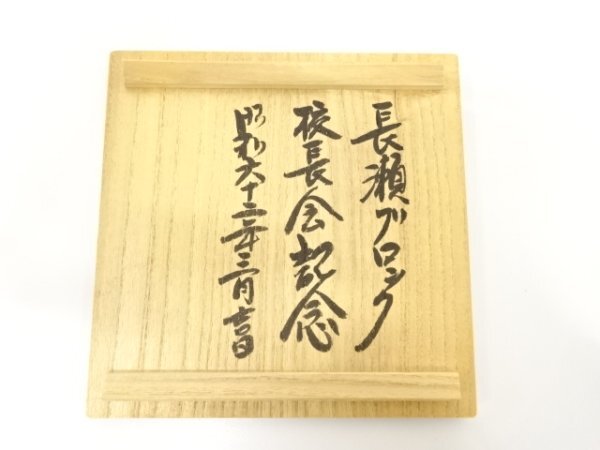 長瀬ブロック
校長会記念
昭和六十二年三月吉日